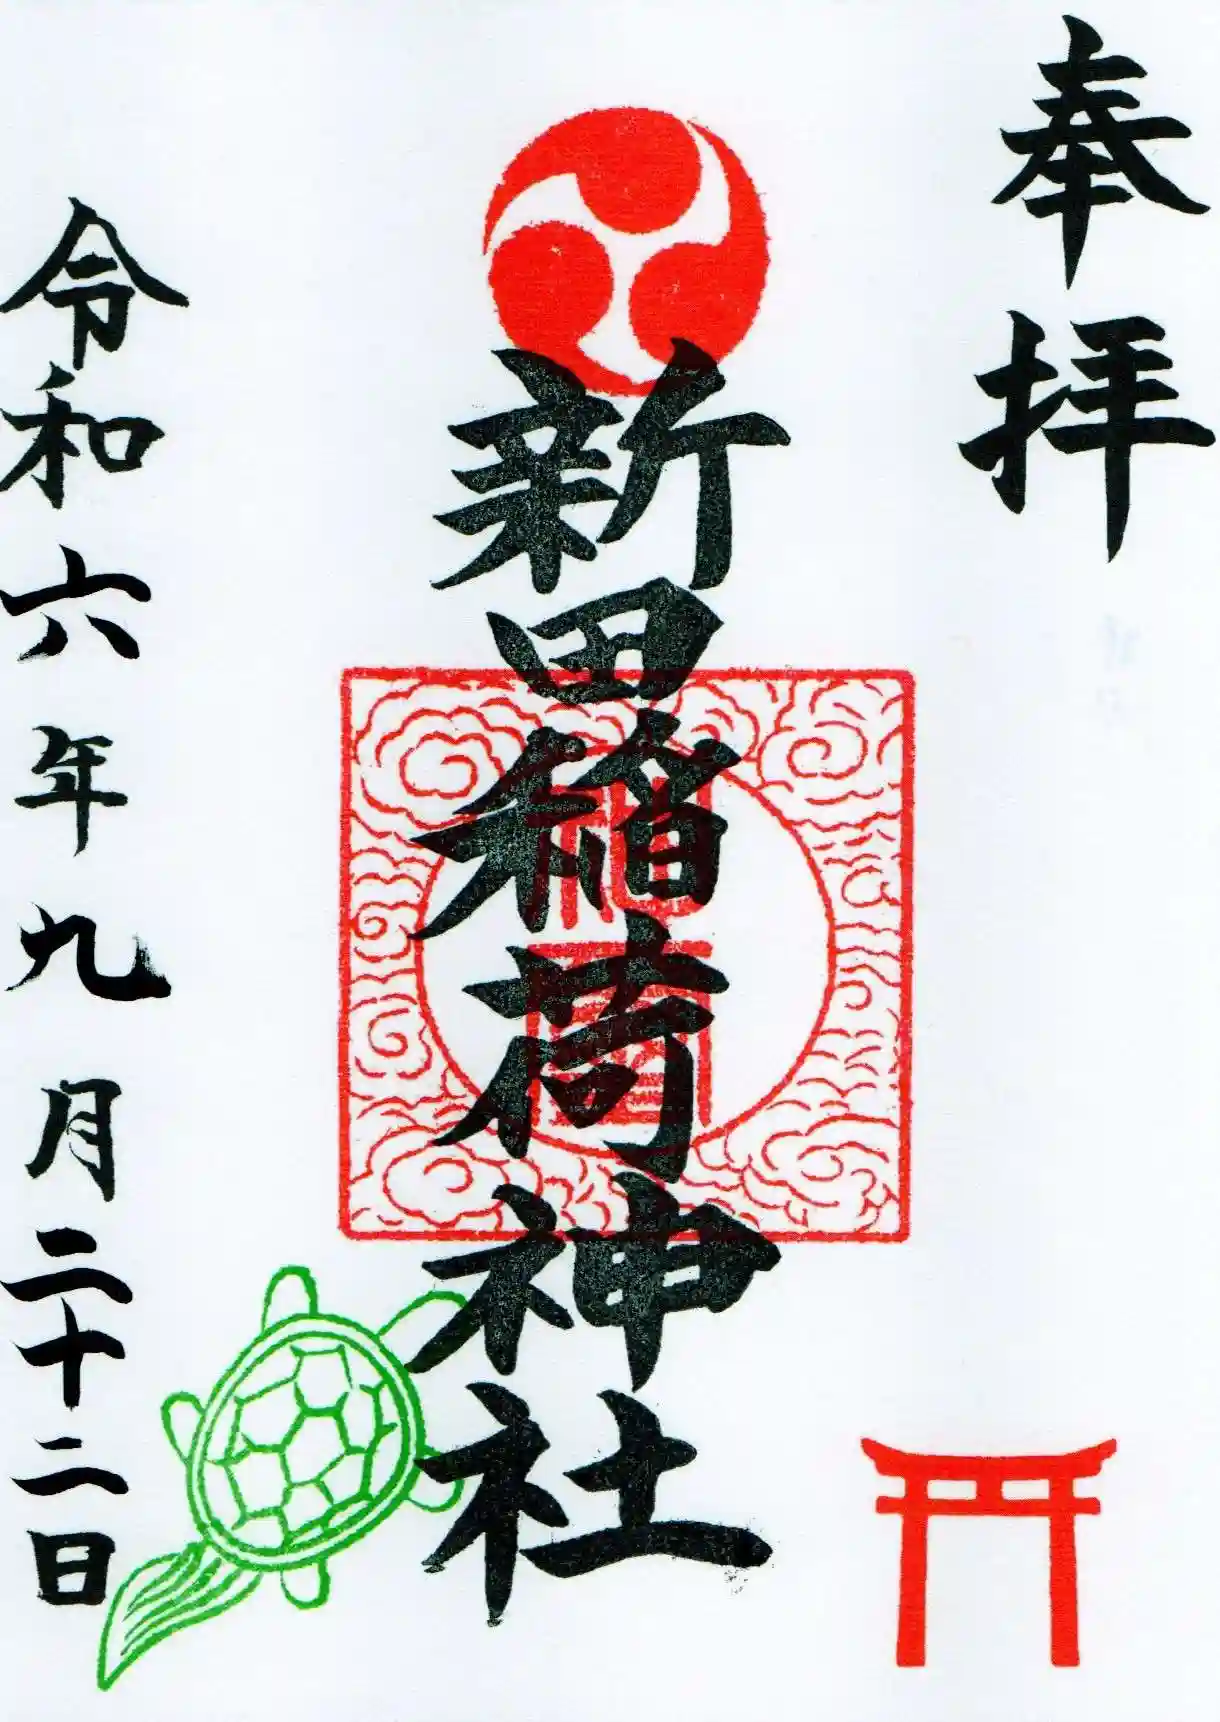 奉拝
新田稲荷神社
令和六年九月二十二日